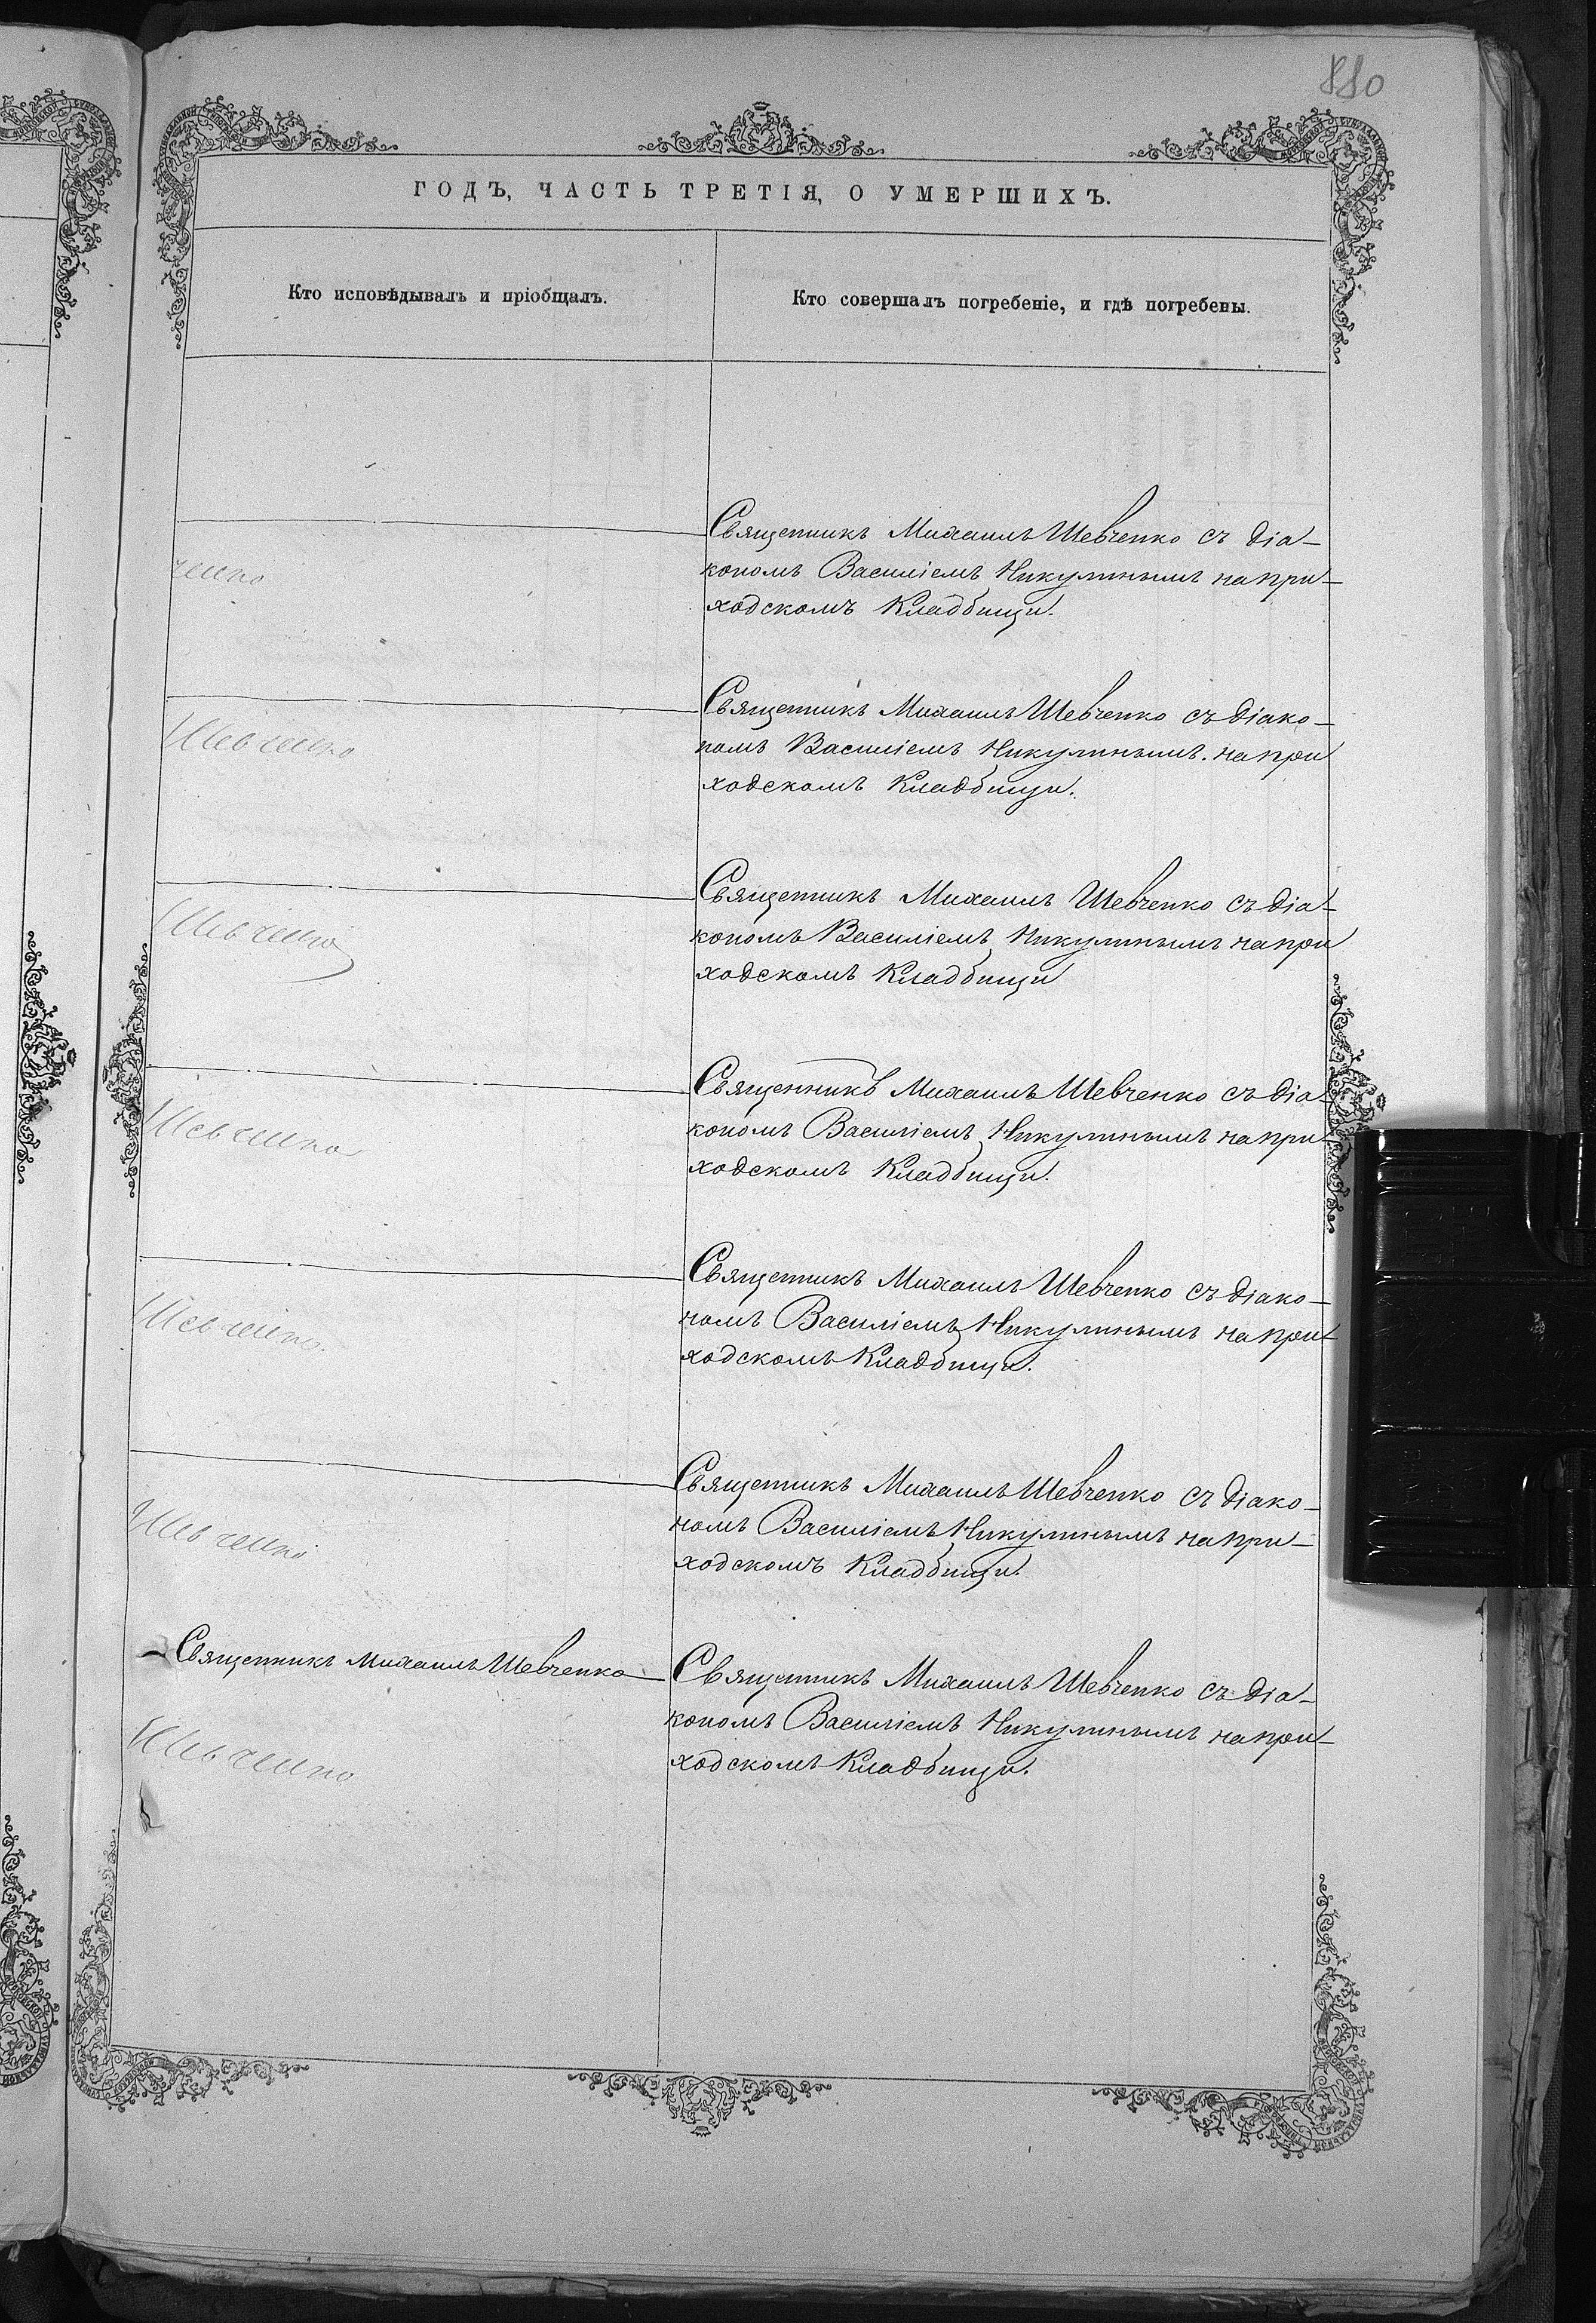 880
ГОДЪ, ЧАСТЬ ТРЕТІЯ, О УМЕРШИХЪ.
Кто исповѣдывалъ и пріобщалъ.
Кто совершалъ погребеніе, и гдѣ погребены.
Священникъ Михаилъ Шевченко съ діа-
кономъ Василіемъ Никулинымъ на при-
ходскомъ Кладбищи.
ченко
Священникъ Михаилъ Шевченко съ діако-
номъ Василіемъ Никулинымъ. на при
ходскомъ Кладбищи.
Шевченко
Священникъ Михаилъ Шевченко съ діа-
кономъ Василіемъ Никулинымъ на при
ходскомъ Кладбищи
Шевченко
Священникъ Михаилъ Шевченко съ діа-
кономъ Василіемъ Никулинымъ на при-
ходскомъ Кладбищи.
Шевченко
Священникъ Михаилъ Шевченко съ діако-
номъ Василіемъ Никулинымъ на при-
ходскомъ Кладбищи.
Шевченко.
Священникъ Михаилъ Шевченко съ діако-
номъ Василіемъ Никулинымъ на при-
ходскомъ Кладбищи.
Шевченко
Священникъ Михаилъ Шевченко
Священникъ Михаилъ Шевченко съ діа-
кономъ Василіемъ Никулинымъ на при-
ходскомъ Кладбищи.
Шевченко